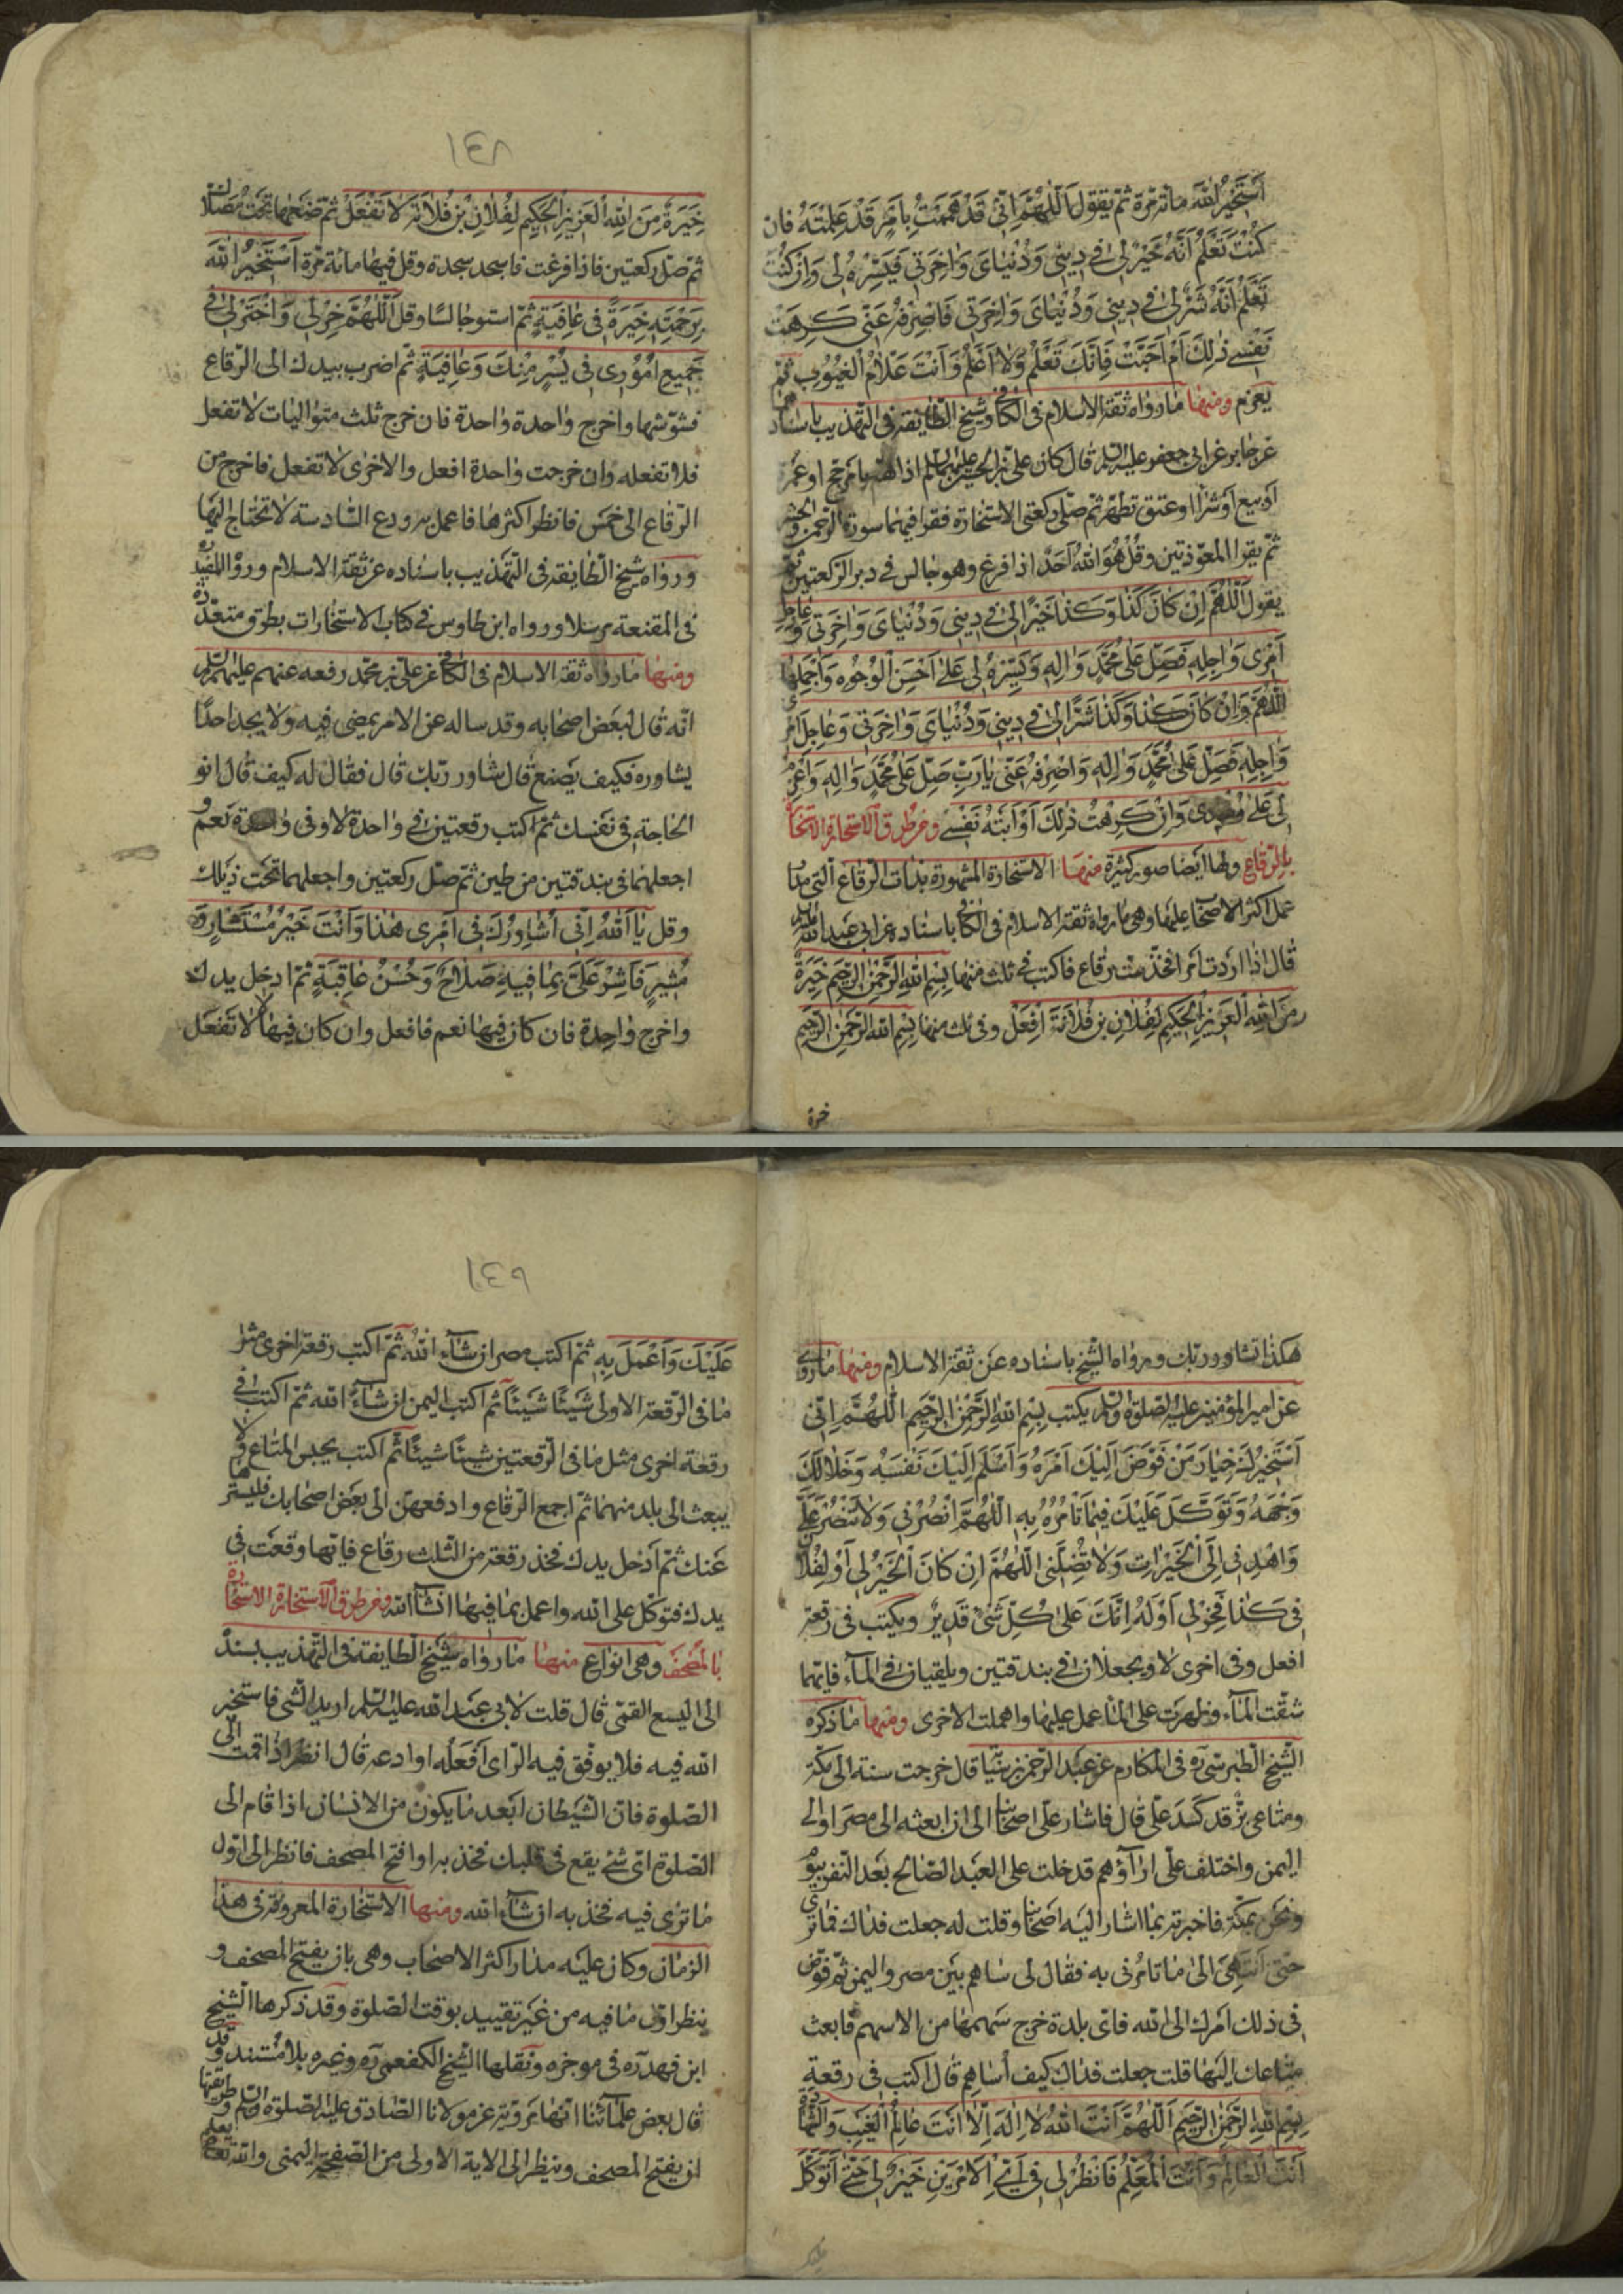 اَسْتَخيرُ اللهَ مائة مرّة ثمّ يقول اَللّٰهُمَّ اِنّى قَدْ هَمَمْتُ بِاَمْرٍ قَدْ عَلِمْتَهُ فان
كُنْتَ تَعْلَمُ اَنَّهُ خَيْرٌ لى فى دينى وَدُنْياىَ وَاٰخِرَتى فَيَسِّرْهُ لى وَاِنْ كُنْتَ
تَعْلَمُ اَنَّهُ شَرٌّ لى فى دينى وَدُنْياىَ وَاٰخِرَتى فَاصْرِفْهُ عَنّى كَرِهَتْ
نَفْسى ذٰلِكَ اَمْ اَحَبَّتْ فَاِنَّكَ تَعْلَمُ وَلا اَعْلَمُ وَاَنْتَ عَلّامُ الْغُيُوبِ ثمّ
يعزم ومنها ما رواه ثقة الاسلام فى الكافى وشيخ الطايفة فى التهذيب باسنادهما
عن جابر عن ابى جعفر عليه السلم قال كان على بن الحسين عليهما السلم اذا همّ بامر حج او عمرة
او بيع او شراء او عتق تطهّر ثمّ صلّى ركعتى الاستخارة فقرا فيهما سورة الرحمن والحشر
ثمّ يقرا المعوّذتين وقُلْ هُوَ اللهُ اَحَدٌ اذا فرغ وهو جالس فى دبر الركعتين ثمّ
يقول اَللّٰهُمَّ اِنْ كانَ كَذا وَكَذا خَيْرًا لى فى دينى وَدُنْياىَ وَاٰخِرَتى وَعاجِلِ
اَمْرى وَاٰجِلِهِ فَصَلِّ عَلى مُحَمَّدٍ وَاٰلِهِ وَيَسِّرْهُ لى عَلى اَحْسَنِ الْوُجُوهِ وَاَجْمَلِها
اَللّٰهُمَّ وَاِنْ كانَ كَذا وَكَذا شَرًّا لى فى دينى وَدُنْياىَ وَاٰخِرَتى وَعاجِلِ اَمْرى
وَاٰجِلِهِ فَصَلِّ عَلى مُحَمَّدٍ وَاٰلِهِ وَاصْرِفْهُ عَنّى يا رَبِّ صَلِّ عَلى مُحَمَّدٍ وَاٰلِهِ وَاعْزِمْ
لى عَلى رُشْدى وَاِنْ كَرِهْتُ ذٰلِكَ اَوْ اَبَتْهُ نَفْسى ومن طرق الاستخارة الاستخارة
بالرّقاع ولها ايضا صور كثيرة منها الاستخارة المشهورة بذات الرّقاع الّتى مدار
عمل اكثر الاصحاب عليها وهى ما رواه ثقة الاسلام فى الكافى باسناده عن ابى عبد الله عليه السلم
قال اذا اردت امرا فخذ ستّ رقاع فاكتب فى ثلث منها بِسْمِ اللهِ الرَّحْمٰنِ الرَّحيمِ خِيَرَةٌ
مِنَ اللهِ الْعَزيزِ الْحَكيمِ لِفُلانِ بْنِ فُلانَةَ اِفْعَلْ وفى ثلث منها بِسْمِ اللهِ الرَّحْمٰنِ الرَّحيمِ
خيرة
١٤٨
خِيَرَةٌ مِنَ اللهِ الْعَزيزِ الْحَكيمِ لِفُلانِ بْنِ فُلانَةَ لا تَفْعَلْ ثمّ ضعها تحت مصلّاك
ثمّ صلّ ركعتين فاذا فرغت فاسجد سجدة وقل فيها مائة مرّة اَسْتَخيرُ اللهَ
بِرَحْمَتِهِ خِيَرَةً فى عافِيَةٍ ثمّ استو جالسًا وقل اَللّٰهُمَّ خِرْ لى وَاخْتَرْ لى فى
جَميعِ اُمُورى فى يُسْرٍ مِنْكَ وَعافِيَةٍ ثمّ اضرب بيدك الى الرّقاع
فشوّشها واخرج واحدة واحدة فان خرج ثلث متواليات لا تفعل
فلا تفعله وان خرجت واحدة افعل والاخرى لا تفعل فاخرج من
الرّقاع الى خمس فانظر اكثرها فاعمل به ودع السّادسة لا تحتاج اليها
ورواه شيخ الطايفة فى التهذيب باسناده عن ثقة الاسلام ورواه المفيد ره
فى المقنعة مرسلا ورواه ابن طاوس فى كتاب الاستخارات بطرق متعدّدة
ومنها ما رواه ثقة الاسلام فى الكافى عن علىّ بن محمّد رفعه عنهم عليهم السلم
انّه قال لبعض اصحابه وقد ساله عن الامر يمضى فيه ولا يجد احدًا
يشاوره فكيف يصنع قال شاور ربّك قال فقال له كيف قال انو
الحاجة فى نفسك ثمّ اكتب رقعتين فى واحدة لا وفى واحدة نعم و
اجعلهما فى بندقتين من طين ثم صلّ ركعتين واجعلهما تحت ذيلك
وقل يا اَللهُ اِنّى اُشاوِرُكَ فى اَمْرى هٰذا وَاَنْتَ خَيْرُ مُسْتَشارٍ وَ
مُشيرٍ فَاَشِرْ عَلَىَّ بِما فيهِ صَلاحٌ وَحُسْنُ عاقِبَةٍ ثمّ ادخل يدك
واخرج واحدة فان كان فيها نعم فافعل وان كان فيها لا لا تفعل
هكذا تشاور ربّك ورواه الشّيخ باسناده عن ثقة الاسلام ومنها ما روى
عن امير المؤمنين عليه الصّلوة والسلم يكتب بِسْمِ اللهِ الرَّحْمٰنِ الرَّحيمِ اَللّٰهُمَّ اِنّى
اَسْتَخيرُكَ خِيارَ مَنْ فَوَّضَ اِلَيْكَ اَمْرَهُ وَاَسْلَمَ اِلَيْكَ نَفْسَهُ وَخَلا لَكَ
وَجْهُهُ وَتَوَكَّلَ عَلَيْكَ فيما تَاْمُرُهُ بِهِ اَللّٰهُمَّ انْصُرْنى وَلا تَنْصُرْ عَلَىَّ
وَاهْدِنى اِلَى الْخَيْراتِ وَلا تُضِلَّنى اَللّٰهُمَّ اِنْ كانَ الْخَيْرُ لى اَوْ لِفُلانٍ
فى كَذا فَخِرْ لى اَوْ لَهُ اِنَّكَ عَلى كُلِّ شَىْءٍ قَديرٌ ويكتب فى رقعة
افعل وفى اخرى لا ويجعلان فى بندقتين ويلقيان فى الماء فايّهما
شقّت الماء وظهرت على الماء عمل عليها واهملت الاخرى ومنها ما ذكره
الشّيخ الطبرسى ره فى المكارم عن عبد الرّحمن بن سيّابة قال خرجت سنة الى مكّة
ومتاعى بزّ قد كسد علىّ قال فاشار علىّ اصحابنا الى ان ابعثه الى مصر او الى
اليمن واختلف علىّ اراؤهم قد خلت على العبد الصّالح بعد النّفر بيوم
ونحن بمكّة فاخبرته بما اشار اليه اصحابنا وقلت له جعلت فداك فما ترى
حتى انتهى الى ما تامرنى به فقال لى ساهم بين مصر واليمن ثم فوّض
فى ذلك امرك الى الله فاىّ بلدة خرج سهمها من الاسهم فابعث
متاعك اليها قلت جعلت فداك كيف اُساهم قال اكتب فى رقعة
بِسْمِ اللهِ الرَّحْمٰنِ الرَّحيمِ اَللّٰهُمَّ اَنْتَ اللهُ لا اِلٰهَ اِلّا اَنْتَ عالِمُ الْغَيْبِ وَالشَّهادَةِ
اَنْتَ الْعالِمُ وَاَنْتَ الْمُعَلِّمُ فَانْظُرْ لى فى اَىِّ الْاَمْرَيْنِ خَيْرٌ لى حَتّى اَتَوَكَّلَ
١٤٩
عَلَيْكَ وَاَعْمَلَ بِهِ ثمّ اكتب مصر ان شاء الله ثمّ اكتب رقعة اخرى مثل
ما فى الرّقعة الاولى شيئًا شيئًا ثم اكتب اليمن ان شاء الله ثم اكتب فى
رقعة اخرى مثل ما فى الرّقعتين شيئًا شيئًا ثمّ اكتب يحبس المتاع ولا
يبعث الى بلد منهما ثمّ اجمع الرّقاع وادفعهنّ الى بعض اصحابك فليسترها
عنك ثمّ ادخل يدك فخذ رقعة من الثلث رقاع فايّها وقعت فى
يدك فتوكّل على الله واعمل بما فيها انشاء الله ومن طرق الاستخارة الاستخارة
بالمصحف وهى انواع منها ما رواه شيخ الطايفة فى التهذيب بسنده
الى اليسع القمّى قال قلت لابى عبد الله عليه السلم اريد الشّى فاستخير
الله فيه فلا يوفّق فيه الرّاى افعله او ادعه قال انظر اذا قمت الى
الصّلوة فانّ الشّيطان ابعد ما يكون من الانسان اذا قام الى
الصّلوة اىّ شئ يقع فى قلبك فخذ به او افتح المصحف فانظر الى اوّل
ما ترى فيه فخذ به ان شاء الله ومنها الاستخارة المعروفة فى هذا
الزمان وكان عليه مدار اكثر الاصحاب وهى بان يفتح المصحف و
ينظر اوّل ما فيه من غير تقييد بوقت الصّلوة وقد ذكرها الشّيخ
ابن فهد ره فى موجزه ونقلها الشّيخ الكفعمى ره وغيره بلا مستند وقد
قال بعض علمائنا انّها مرويّة عن مولانا الصّادق عليه الصّلوة والسلم وطريقها
ان يفتح المصحف وينظر الى الاية الاولى من الصّفحة اليمنى والله يعلم